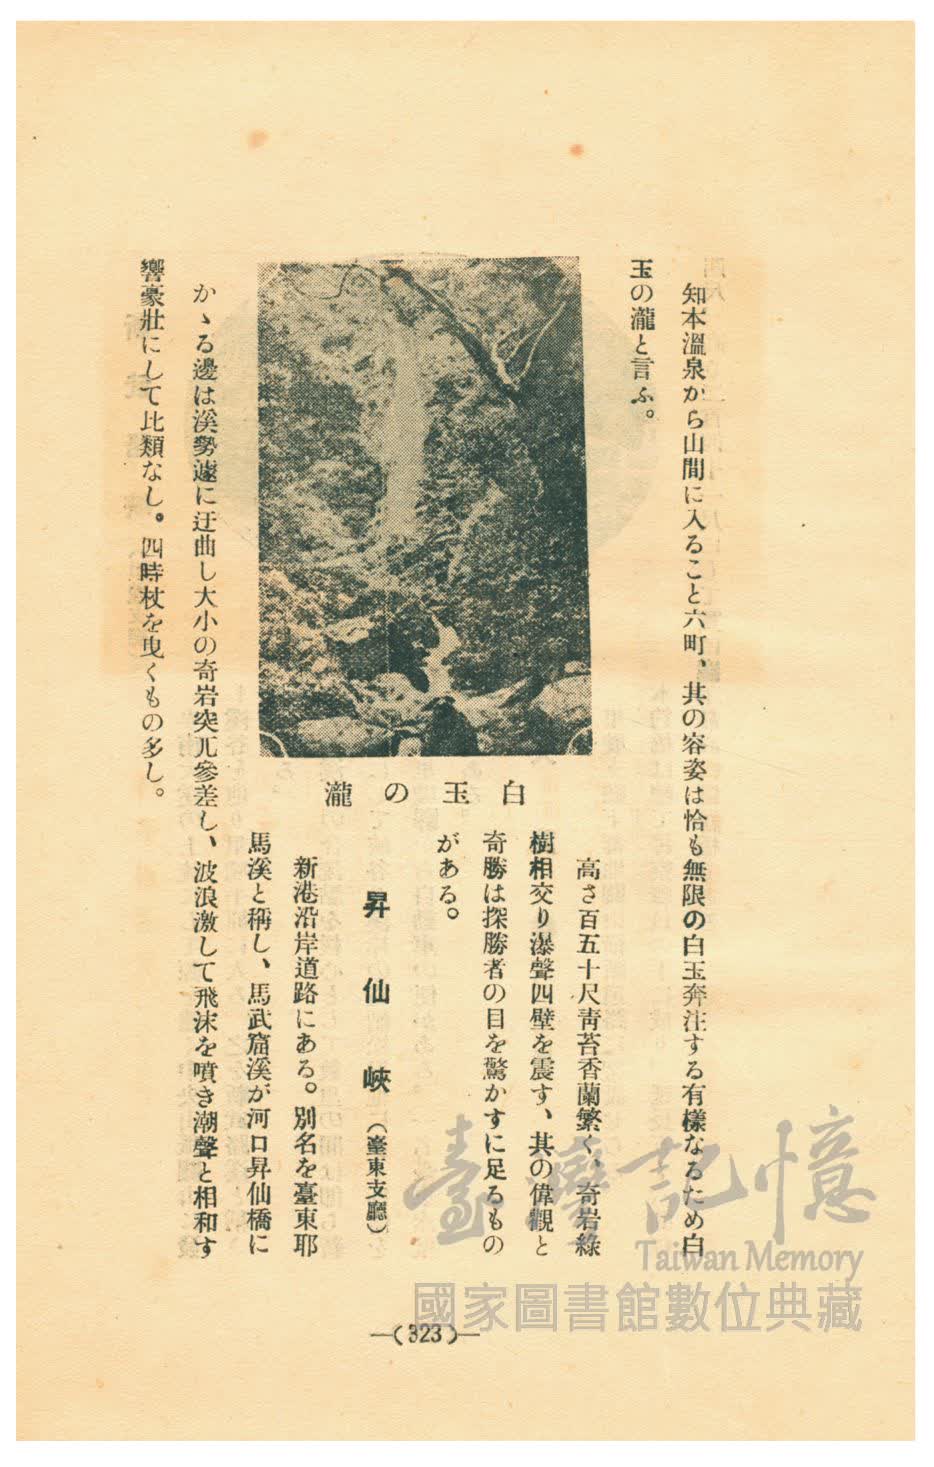 知本溫泉から山間に入ること六町、其の容姿は恰も無限の白玉奔注する有樣なるため白
玉の瀧と言ふ。
白玉の瀧
高さ百五十尺靑苔香蘭繁く、奇岩綠
樹相交り瀑聲四壁を震す、其の偉觀と
奇勝は探勝者の目を驚かすに足るもの
がある。
昇仙峽（臺東支廳）
新港沿岸道路にある。別名を臺東耶
馬溪と稱し、馬武窟溪が河口昇仙橋に
かゝる邊は溪勢遽に迂曲し大小の奇岩突兀參差し、波浪激して飛沫を噴き潮聲と相和す
響豪壯にして比類なし。四時杖を曳くもの多し。
—(323)—
臺灣記憶
Taiwan Memory
國家圖書館數位典藏